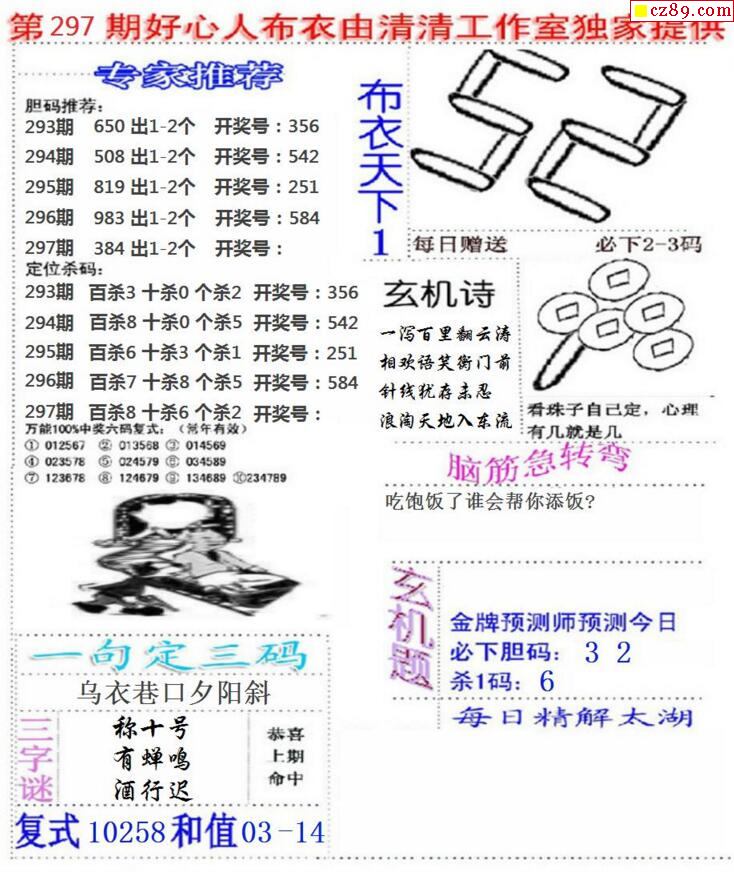 cz89.com
第297期好心人布衣由清清工作室独家提供
专家推荐
胆码推荐:
293期 650 出1-2个 开奖号：356
294期 508 出1-2个 开奖号：542
295期 819 出1-2个 开奖号：251
296期 983 出1-2个 开奖号：584
297期 384 出1-2个 开奖号：
定位杀码:
293期 百杀3 十杀0 个杀2 开奖号：356
294期 百杀8 十杀0 个杀5 开奖号：542
295期 百杀6 十杀3 个杀1 开奖号：251
296期 百杀7 十杀8 个杀5 开奖号：584
297期 百杀8 十杀6 个杀2 开奖号：
万能100%中奖六码复式：（常年有效）
① 012567 ② 013568 ③ 014569
④ 023578 ⑤ 024579 ⑥ 034589
⑦ 123678 ⑧ 124679 ⑨ 134689 ⑩234789
一句定三码
乌衣巷口夕阳斜
三字谜
称十号
有蝉鸣
酒行迟
恭喜
上期
命中
复式10258和值03-14
布衣天下1
52
每日赠送 必下2-3码
玄机诗
一泻百里翻云涛
相欢语笑衡门前
针线犹存未忍
浪淘天地入东流
看珠子自己定，心理
有几就是几
脑筋急转弯
吃饱饭了谁会帮你添饭?
玄机题
金牌预测师预测今日
必下胆码： 3 2
杀1码：6
每日精解太湖